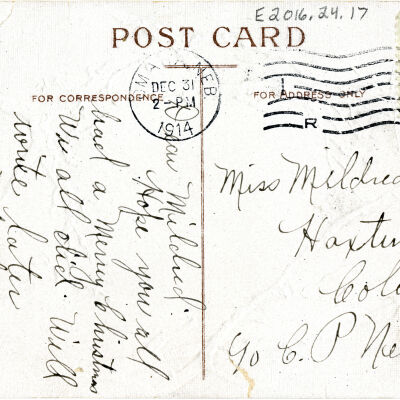 E2016.24.17
POST CARD
OMAHA, NEB
DEC 31
2 - PM
1914
FOR CORRESPONDENCE
FOR ADDRESS ONLY
R
Dear Mildred:
Hope you all
had a Merry Christmas
We all did. Will
write later
Miss Mildred
Haxtun
Colo
C. P. Ne